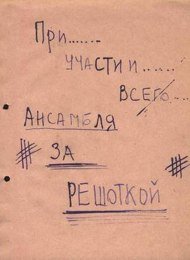 При.......
участи и.....
всего....
Ансамбля
# за #
решоткой